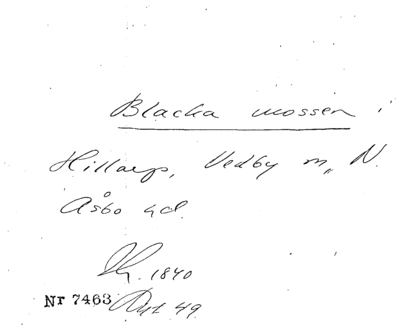 Blacka mossen i
Hillarp, Vedby m,, N.
Åsbo hd.
1840
Nr 7463 49